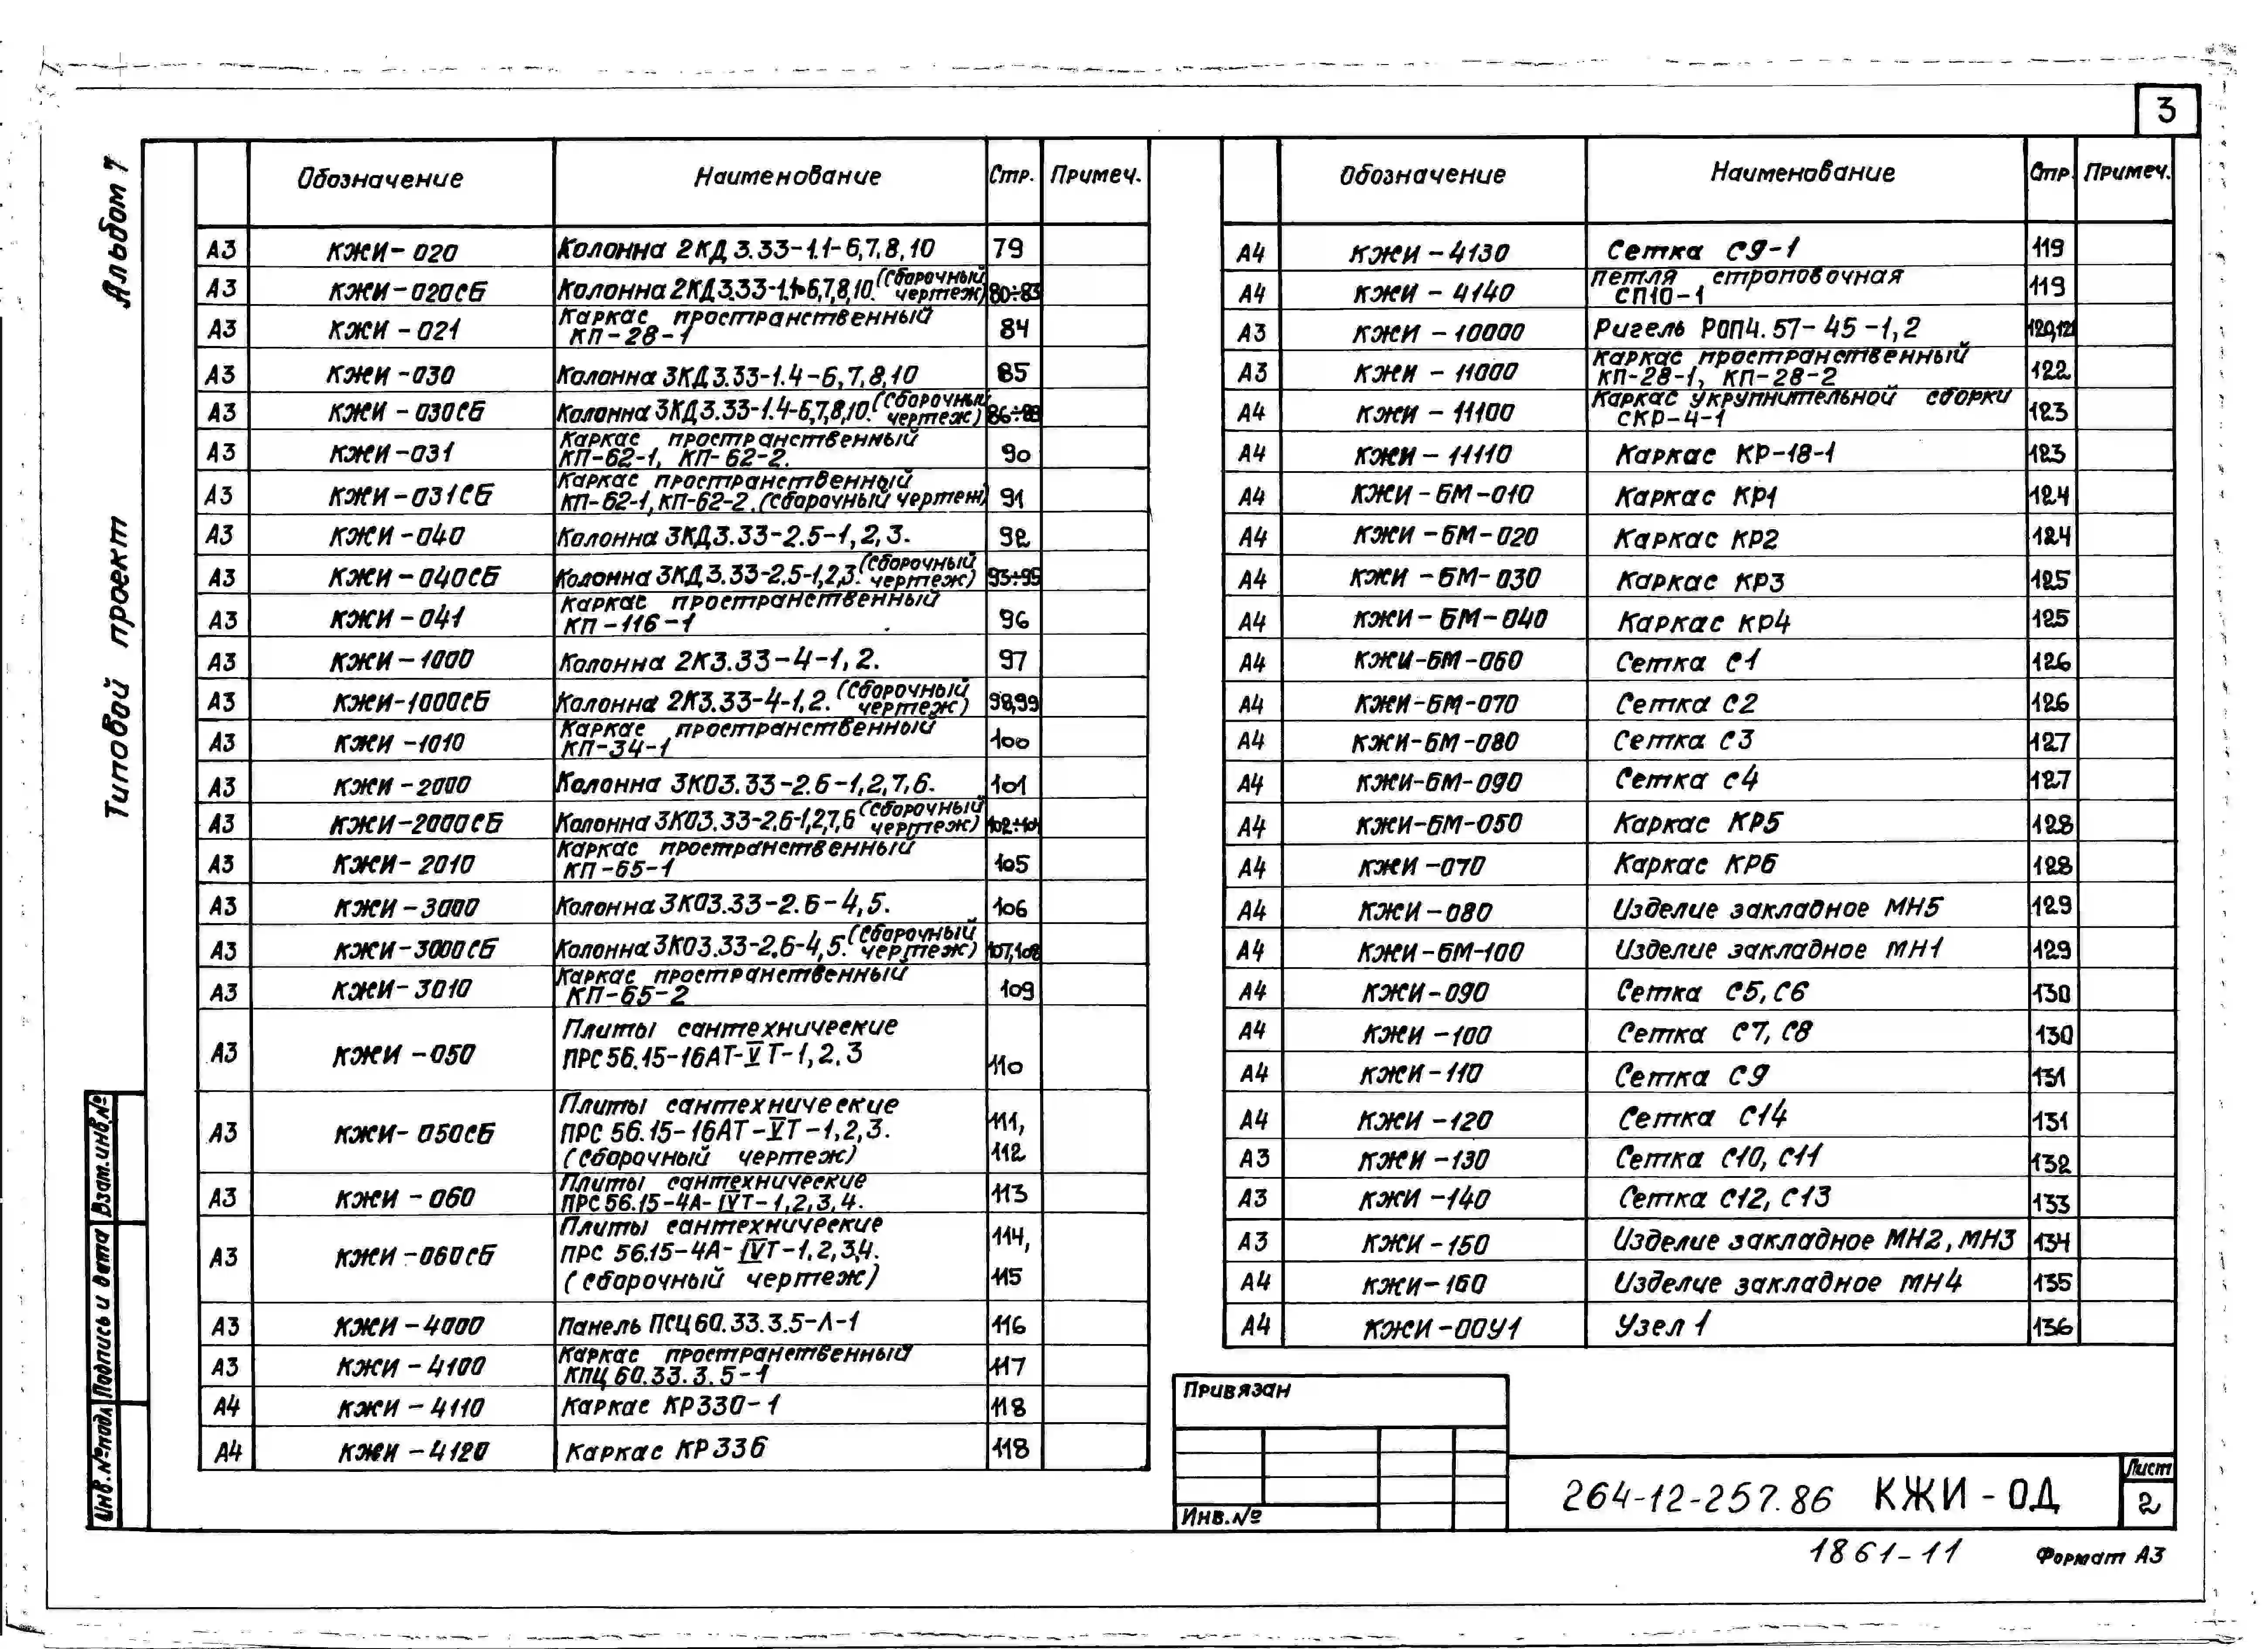 3
Альбом 7
Типовой проект
Обозначение Наименование Стр. Примеч.
А3 КЖИ-020 Колонна 2КД3.33-1.1-6,7,8,10 79
А3 КЖИ-020СБ Колонна 2КД3.33-1.1-6,7,8,10. (Сборочный чертеж) 80÷83
А3 КЖИ-021 Каркас пространственный КП-28-1 84
А3 КЖИ-030 Колонна 3КД3.33-1.4-6,7,8,10 85
А3 КЖИ-030СБ Колонна 3КД3.33-1.4-6,7,8,10. (Сборочный чертеж) 86÷89
А3 КЖИ-031 Каркас пространственный КП-62-1, КП-62-2. 90
А3 КЖИ-031СБ Каркас пространственный КП-62-1, КП-62-2. (Сборочный чертеж) 91
А3 КЖИ-040 Колонна 3КД3.33-2.5-1,2,3. 92
А3 КЖИ-040СБ Колонна 3КД3.33-2.5-1,2,3. (Сборочный чертеж) 93÷95
А3 КЖИ-041 Каркас пространственный КП-116-1 96
А3 КЖИ-1000 Колонна 2К3.33-4-1,2. 97
А3 КЖИ-1000СБ Колонна 2К3.33-4-1,2. (Сборочный чертеж) 98,99
А3 КЖИ-1010 Каркас пространственный КП-34-1 100
А3 КЖИ-2000 Колонна 3КО3.33-2.6-1,2,7,6. 101
А3 КЖИ-2000СБ Колонна 3КО3.33-2.6-1,2,7,6 (Сборочный чертеж) 102÷104
А3 КЖИ-2010 Каркас пространственный КП-65-1 105
А3 КЖИ-3000 Колонна 3КО3.33-2.6-4,5. 106
А3 КЖИ-3000СБ Колонна 3КО3.33-2.6-4,5. (Сборочный чертеж) 107,108
А3 КЖИ-3010 Каркас пространственный КП-65-2 109
А3 КЖИ-050 Плиты сантехнические ПРС56.15-16АТ-VТ-1,2.3 110
А3 КЖИ-050СБ Плиты сантехнические ПРС56.15-16АТ-VТ-1,2,3. (Сборочный чертеж) 111, 112
А3 КЖИ-060 Плиты сантехнические ПРС56.15-4А-IVТ-1,2,3,4. 113
А3 КЖИ-060СБ Плиты сантехнические ПРС56.15-4А-IVТ-1,2,3,4. (Сборочный чертеж) 114, 115
А3 КЖИ-4000 Панель ПСЦ60.33.3.5-Л-1 116
А3 КЖИ-4100 Каркас пространственный КПЦ60.33.3.5-1 117
А4 КЖИ-4110 Каркас КР330-1 118
А4 КЖИ-4120 Каркас КР336 118
Обозначение Наименование Стр. Примеч.
А4 КЖИ-4130 Сетка С9-1 119
А4 КЖИ-4140 Петля строповочная СП10-1 119
А3 КЖИ-10000 Ригель РОП4.57-45-1,2 120,121
А3 КЖИ-11000 Каркас пространственный КП-28-1, КП-28-2 122
А4 КЖИ-11100 Каркас укрупнительной сборки СКР-4-1 123
А4 КЖИ-11110 Каркас КР-18-1 123
А4 КЖИ-БМ-010 Каркас КР1 124
А4 КЖИ-БМ-020 Каркас КР2 124
А4 КЖИ-БМ-030 Каркас КР3 125
А4 КЖИ-БМ-040 Каркас КР4 125
А4 КЖИ-БМ-060 Сетка С1 126
А4 КЖИ-БМ-070 Сетка С2 126
А4 КЖИ-БМ-080 Сетка С3 127
А4 КЖИ-БМ-090 Сетка С4 127
А4 КЖИ-БМ-050 Каркас КР5 128
А4 КЖИ-070 Каркас КР6 128
А4 КЖИ-080 Изделие закладное МН5 129
А4 КЖИ-БМ-100 Изделие закладное МН1 129
А4 КЖИ-090 Сетка С5, С6 130
А4 КЖИ-100 Сетка С7, С8 130
А4 КЖИ-110 Сетка С9 131
А4 КЖИ-120 Сетка С14 131
А3 КЖИ-130 Сетка С10, С11 132
А3 КЖИ-140 Сетка С12, С13 133
А3 КЖИ-150 Изделие закладное МН2, МН3 134
А4 КЖИ-160 Изделие закладное МН4 135
А4 КЖИ-00У1 Узел 1 136
Взам.инв.№
Подпись и дата
Инв.№подл
Привязан
Инв.№
264-12-257.86 КЖИ-ОД
Лист
2
1861-11
Формат А3